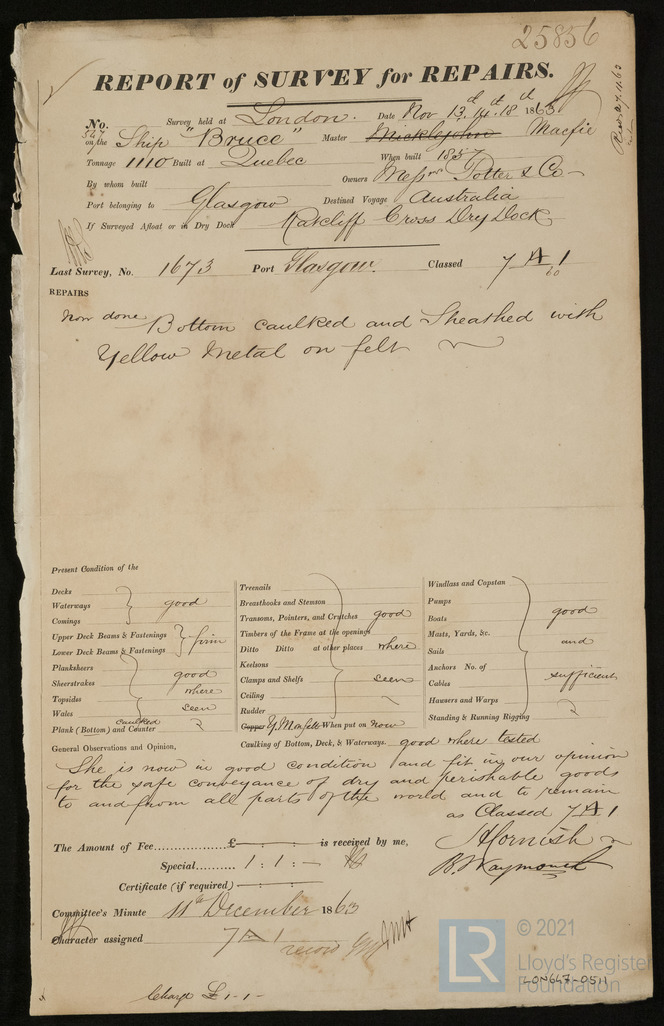 25856
REPORT of SURVEY for REPAIRS.
Recd 27.11.63
No. 547 Survey held at London. Date Nov 13th 14th 18th 1863
on the Ship "Bruce" Master Micklejohn Macfie
Tonnage 1110 Built at Quebec When built 1857
By whom built Owners Messrs Potter & Co
Port belonging to Glasgow Destined Voyage Australia
If Surveyed Afloat or in Dry Dock Ratcliff Cross Dry Dock
Last Survey, No. 1673 Port Glasgow. Classed 7 A 1
60
REPAIRS
Now done Bottom caulked and Sheathed with
Yellow Metal on felt
Present Condition of the
Decks
Waterways good
Comings
Upper Deck Beams & Fastenings firm
Lower Deck Beams & Fastenings
Planksheers good
Sheerstrakes where
Topsides seen
Wales
Plank (Bottom) and Counter caulked
Treenails
Breasthooks and Stemson
Transoms, Pointers, and Crutches good
Timbers of the Frame at the openings
Ditto Ditto at other places where
Keelsons
Clamps and Shelfs seen
Ceiling
Rudder
Copper Y. M on felt When put on now
Windlass and Capstan
Pumps
Boats good
Masts, Yards, &c.
Sails and
Anchors No. of
Cables sufficient
Hausers and Warps
Standing & Running Rigging
Caulking of Bottom, Deck, & Waterways. good where tested
General Observations and Opinion,
She is now in good condition and fit in our opinion
for the safe conveyance of dry and perishable goods
to and from all parts of the world and to remain
as Classed 7 A 1
The Amount of Fee......£ : : is received by me,
Special......... 1 : 1 : –
Certificate (if required) : :
H Cornish
B. Waymouth
Committee's Minute 11th December 1863
Character assigned 7 A 1
Charge £1-1-
LR
© 2021
Lloyd's Register
Foundation
LON647-0511